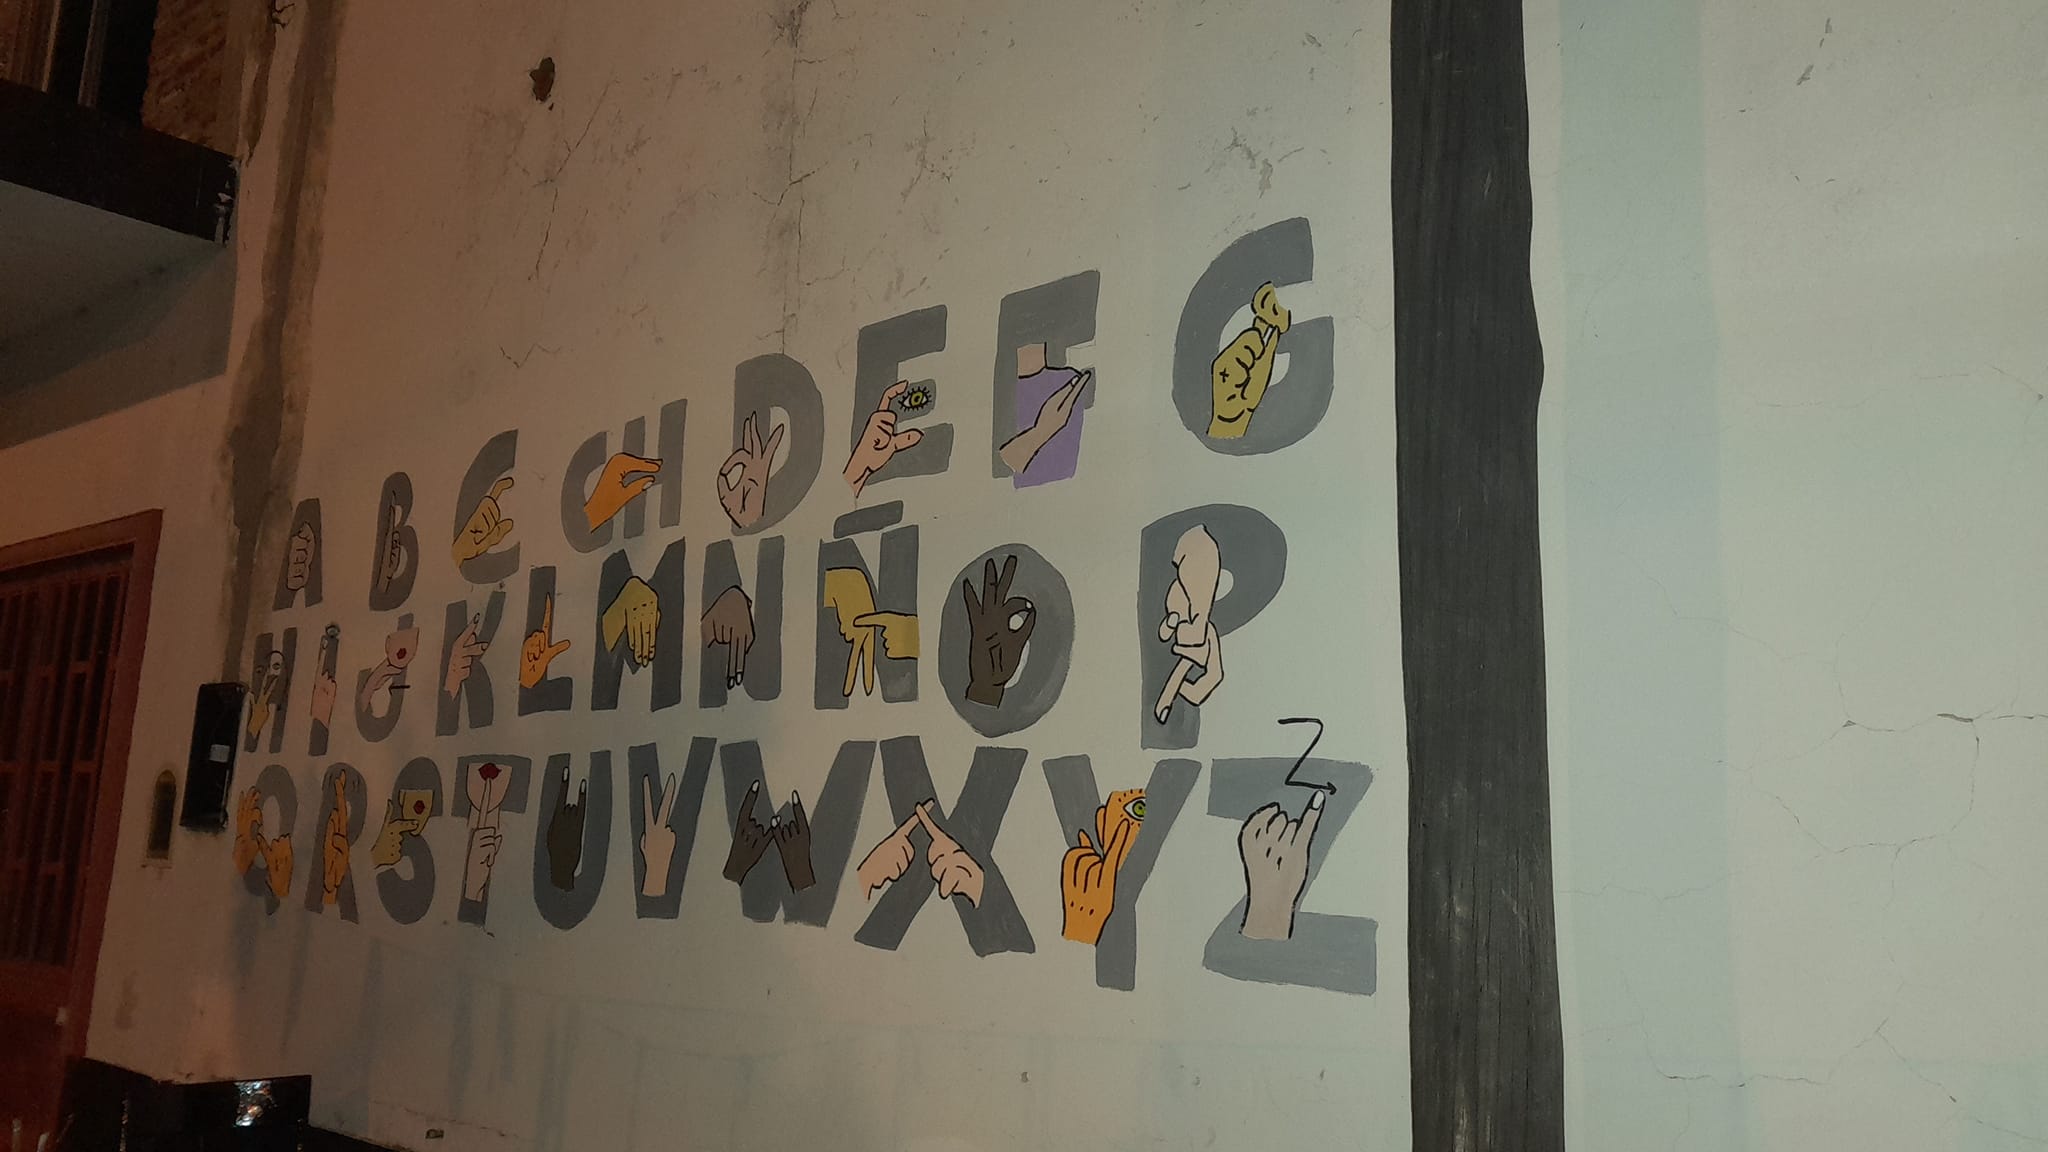 A B C CH D E F G
H I J K L M N Ñ O P
Q R S T U V W X Y Z